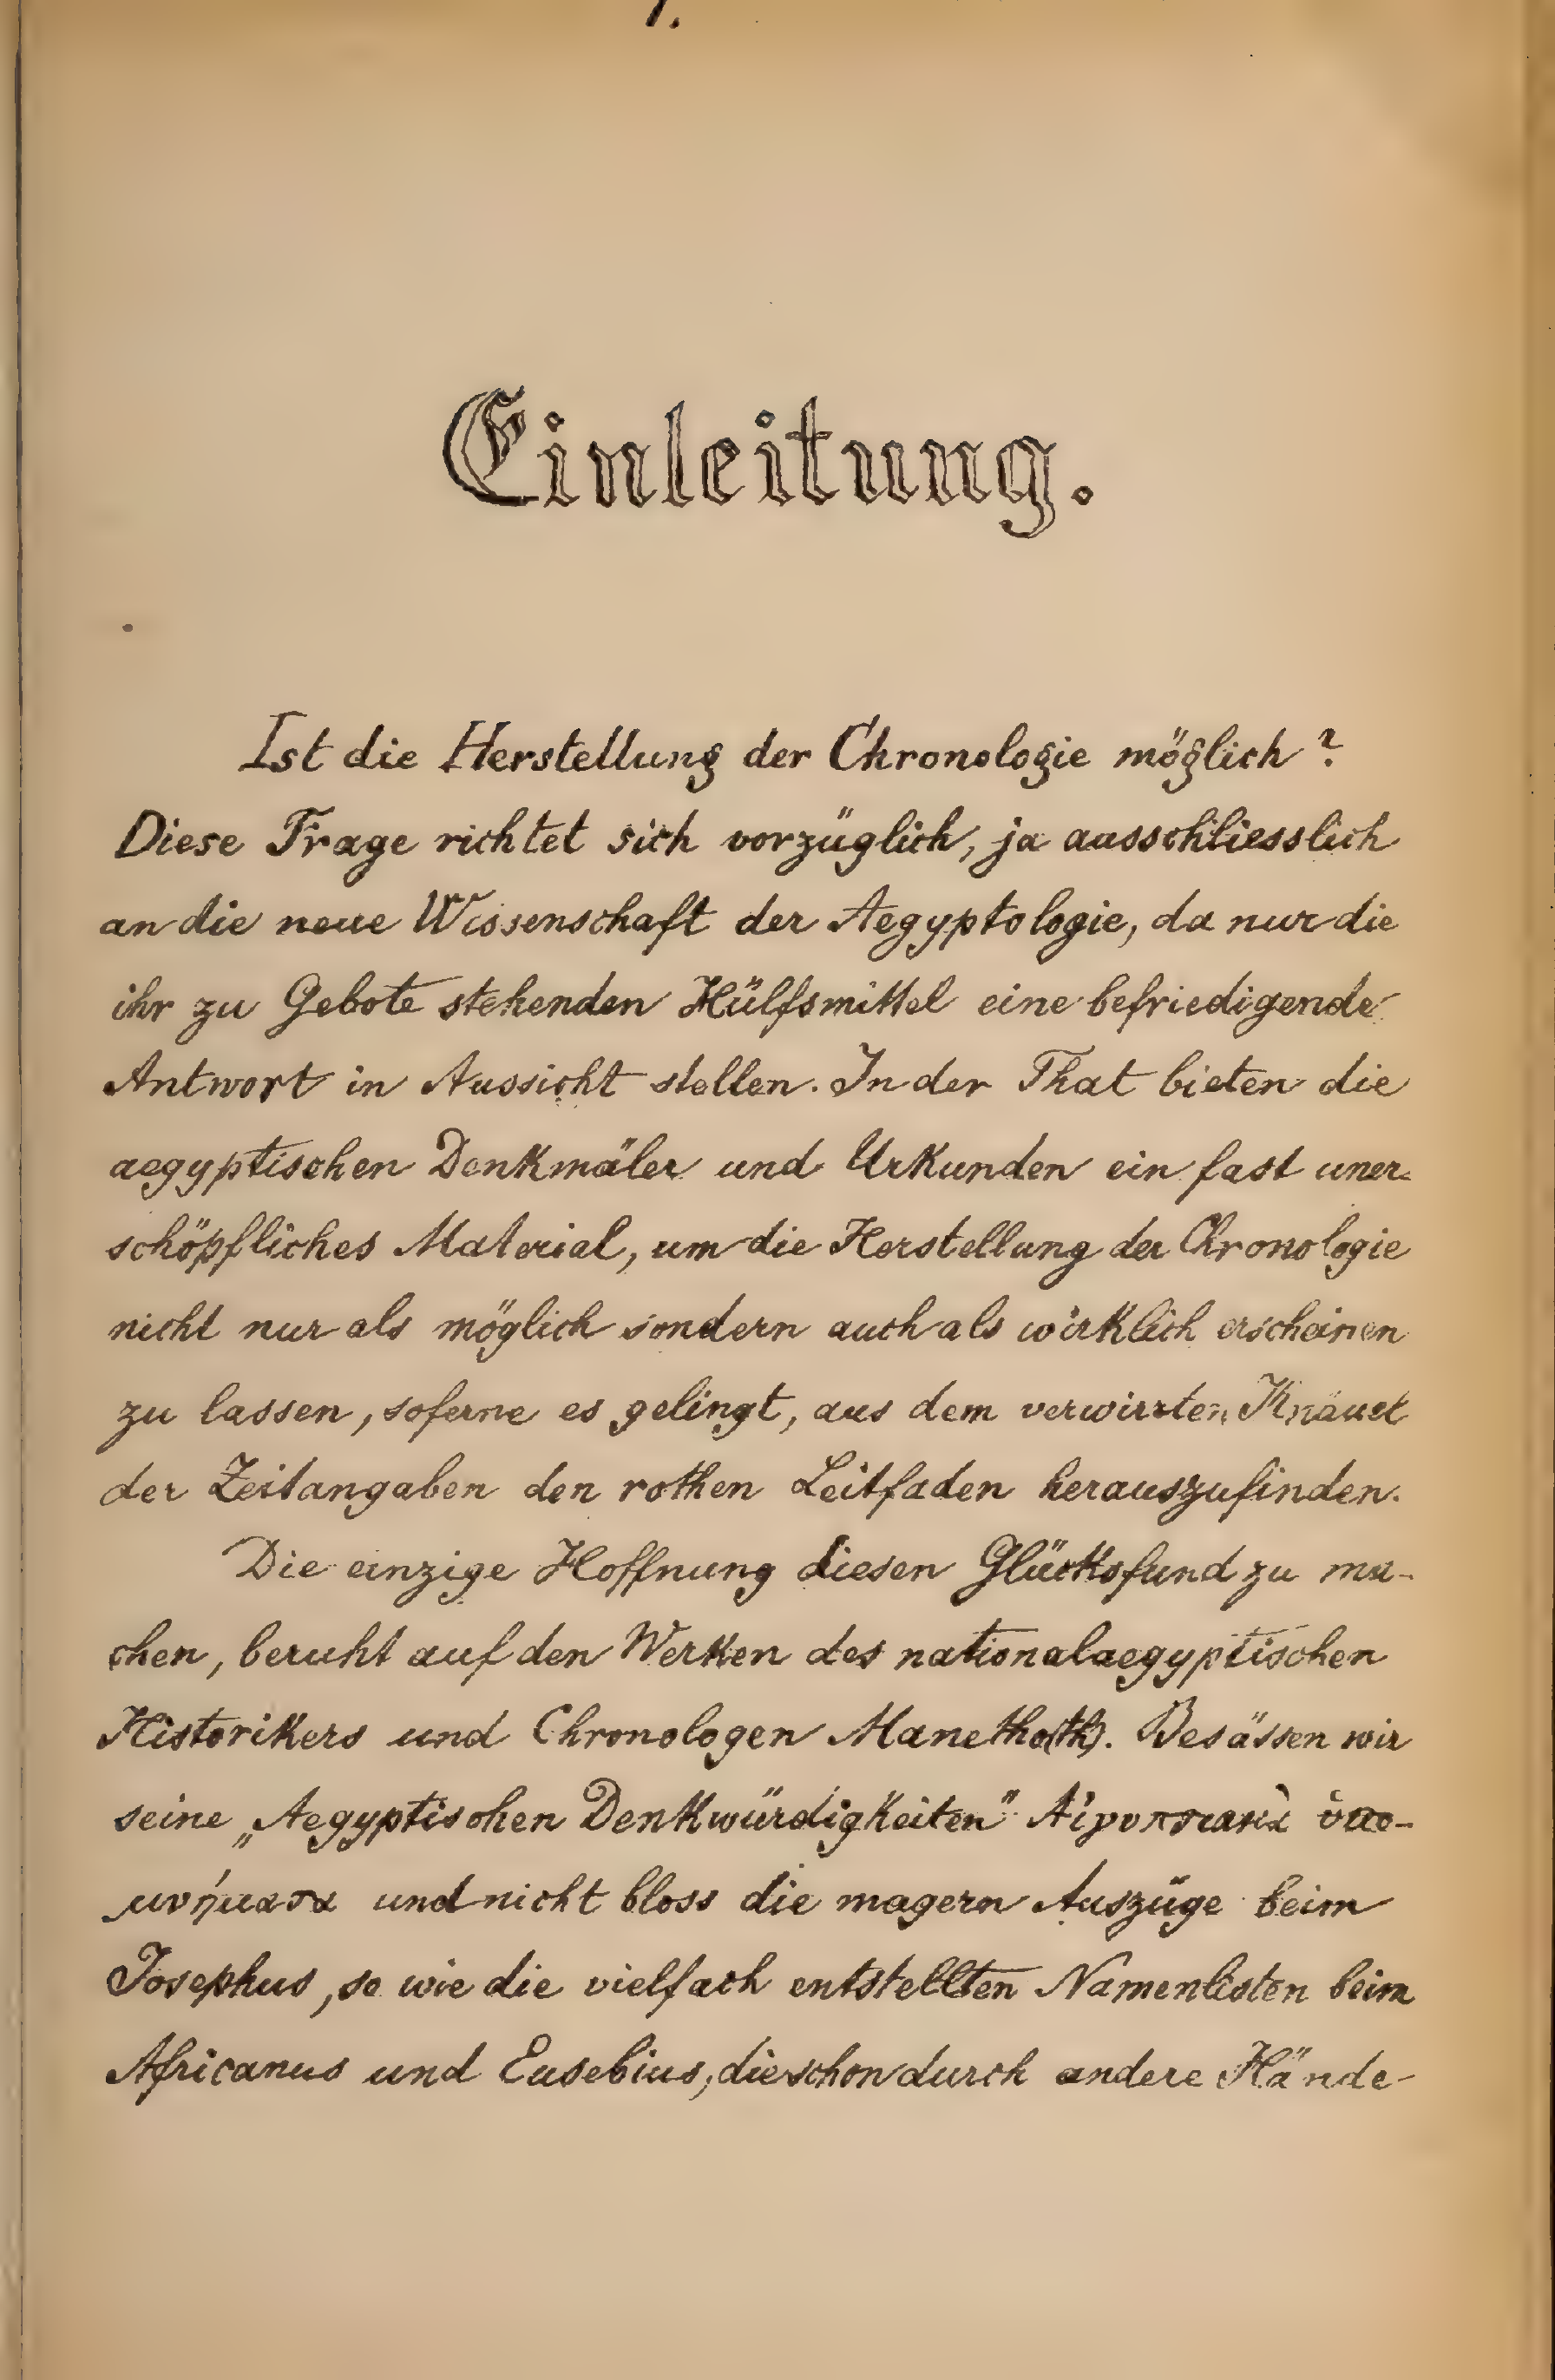 1.
Einleitung.
Ist die Herstellung der Chronologie möglich?
Diese Frage richtet sich vorzüglich, ja ausschliesslich
an die neue Wissenschaft der Aegyptologie, da nur die
ihr zu Gebote stehenden Hülfsmittel eine befriedigende
Antwort in Aussicht stellen. In der That bieten die
aegyptischen Denkmäler und Urkunden ein fast uner-
schöpfliches Material, um die Herstellung der Chronologie
nicht nur als möglich sondern auch als wirklich erscheinen
zu lassen, soferne es gelingt, aus dem verwirrten Knäuel
der Zeitangaben den rothen Leitfaden herauszufinden.
Die einzige Hoffnung diesen Glücksfund zu ma-
chen, beruht auf den Werken des nationalaegyptischen
Historikers und Chronologen Manetho(th). Besässen wir
seine „Aegyptischen Denkwürdigkeiten" Αἰγυπτιακὰ ὑπο-
μνήματα und nicht bloss die magern Auszüge beim
Josephus, so wie die vielfach entstellten Namenlisten beim
Africanus und Eusebius, die schon durch andere Hände